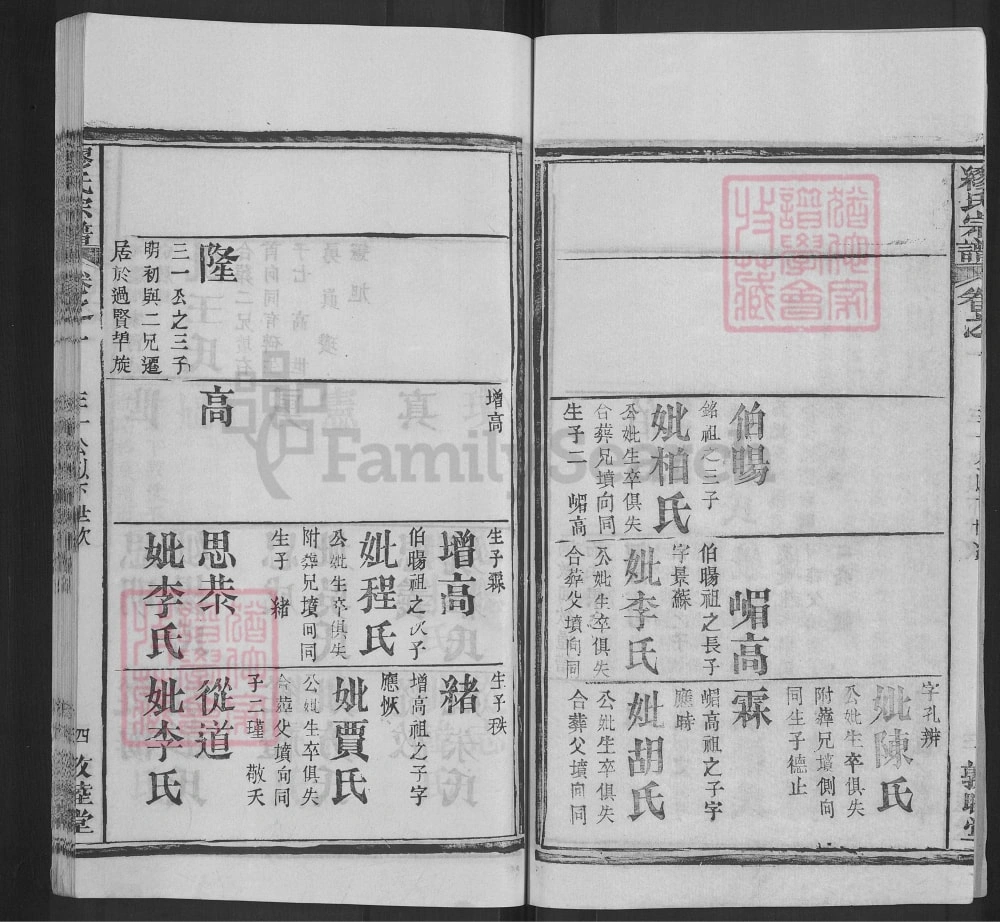 繆氏宗譜
卷之一
伯暘
銘祖之三子
妣柏氏
公妣生卒俱失
合葬兄墳向同
生子二 嵋高
增高
嵋高
伯暘祖之長子
字景蘇
妣李氏
公妣生卒俱失
合葬父墳向同
生子霖
增高
伯暘祖之次子
妣程氏
公妣生卒俱失
附葬兄墳向同
生子緒
字孔辨
妣陳氏
公妣生卒俱失
附葬兄墳側向
同生子德止
霖
嵋高祖之子字
應時
妣胡氏
公妣生卒俱失
合葬父墳向同
生子秩
緒
增高祖之子字
應恢
妣賈氏
公妣生卒俱失
合葬父墳向同
子二瑾 敬天
隆
三一公之三子
明初與二兄遷
居於過賢
高
思恭
妣李氏
從道
妣李氏
三十公以下世次
四
敦睦堂
FamilySearch